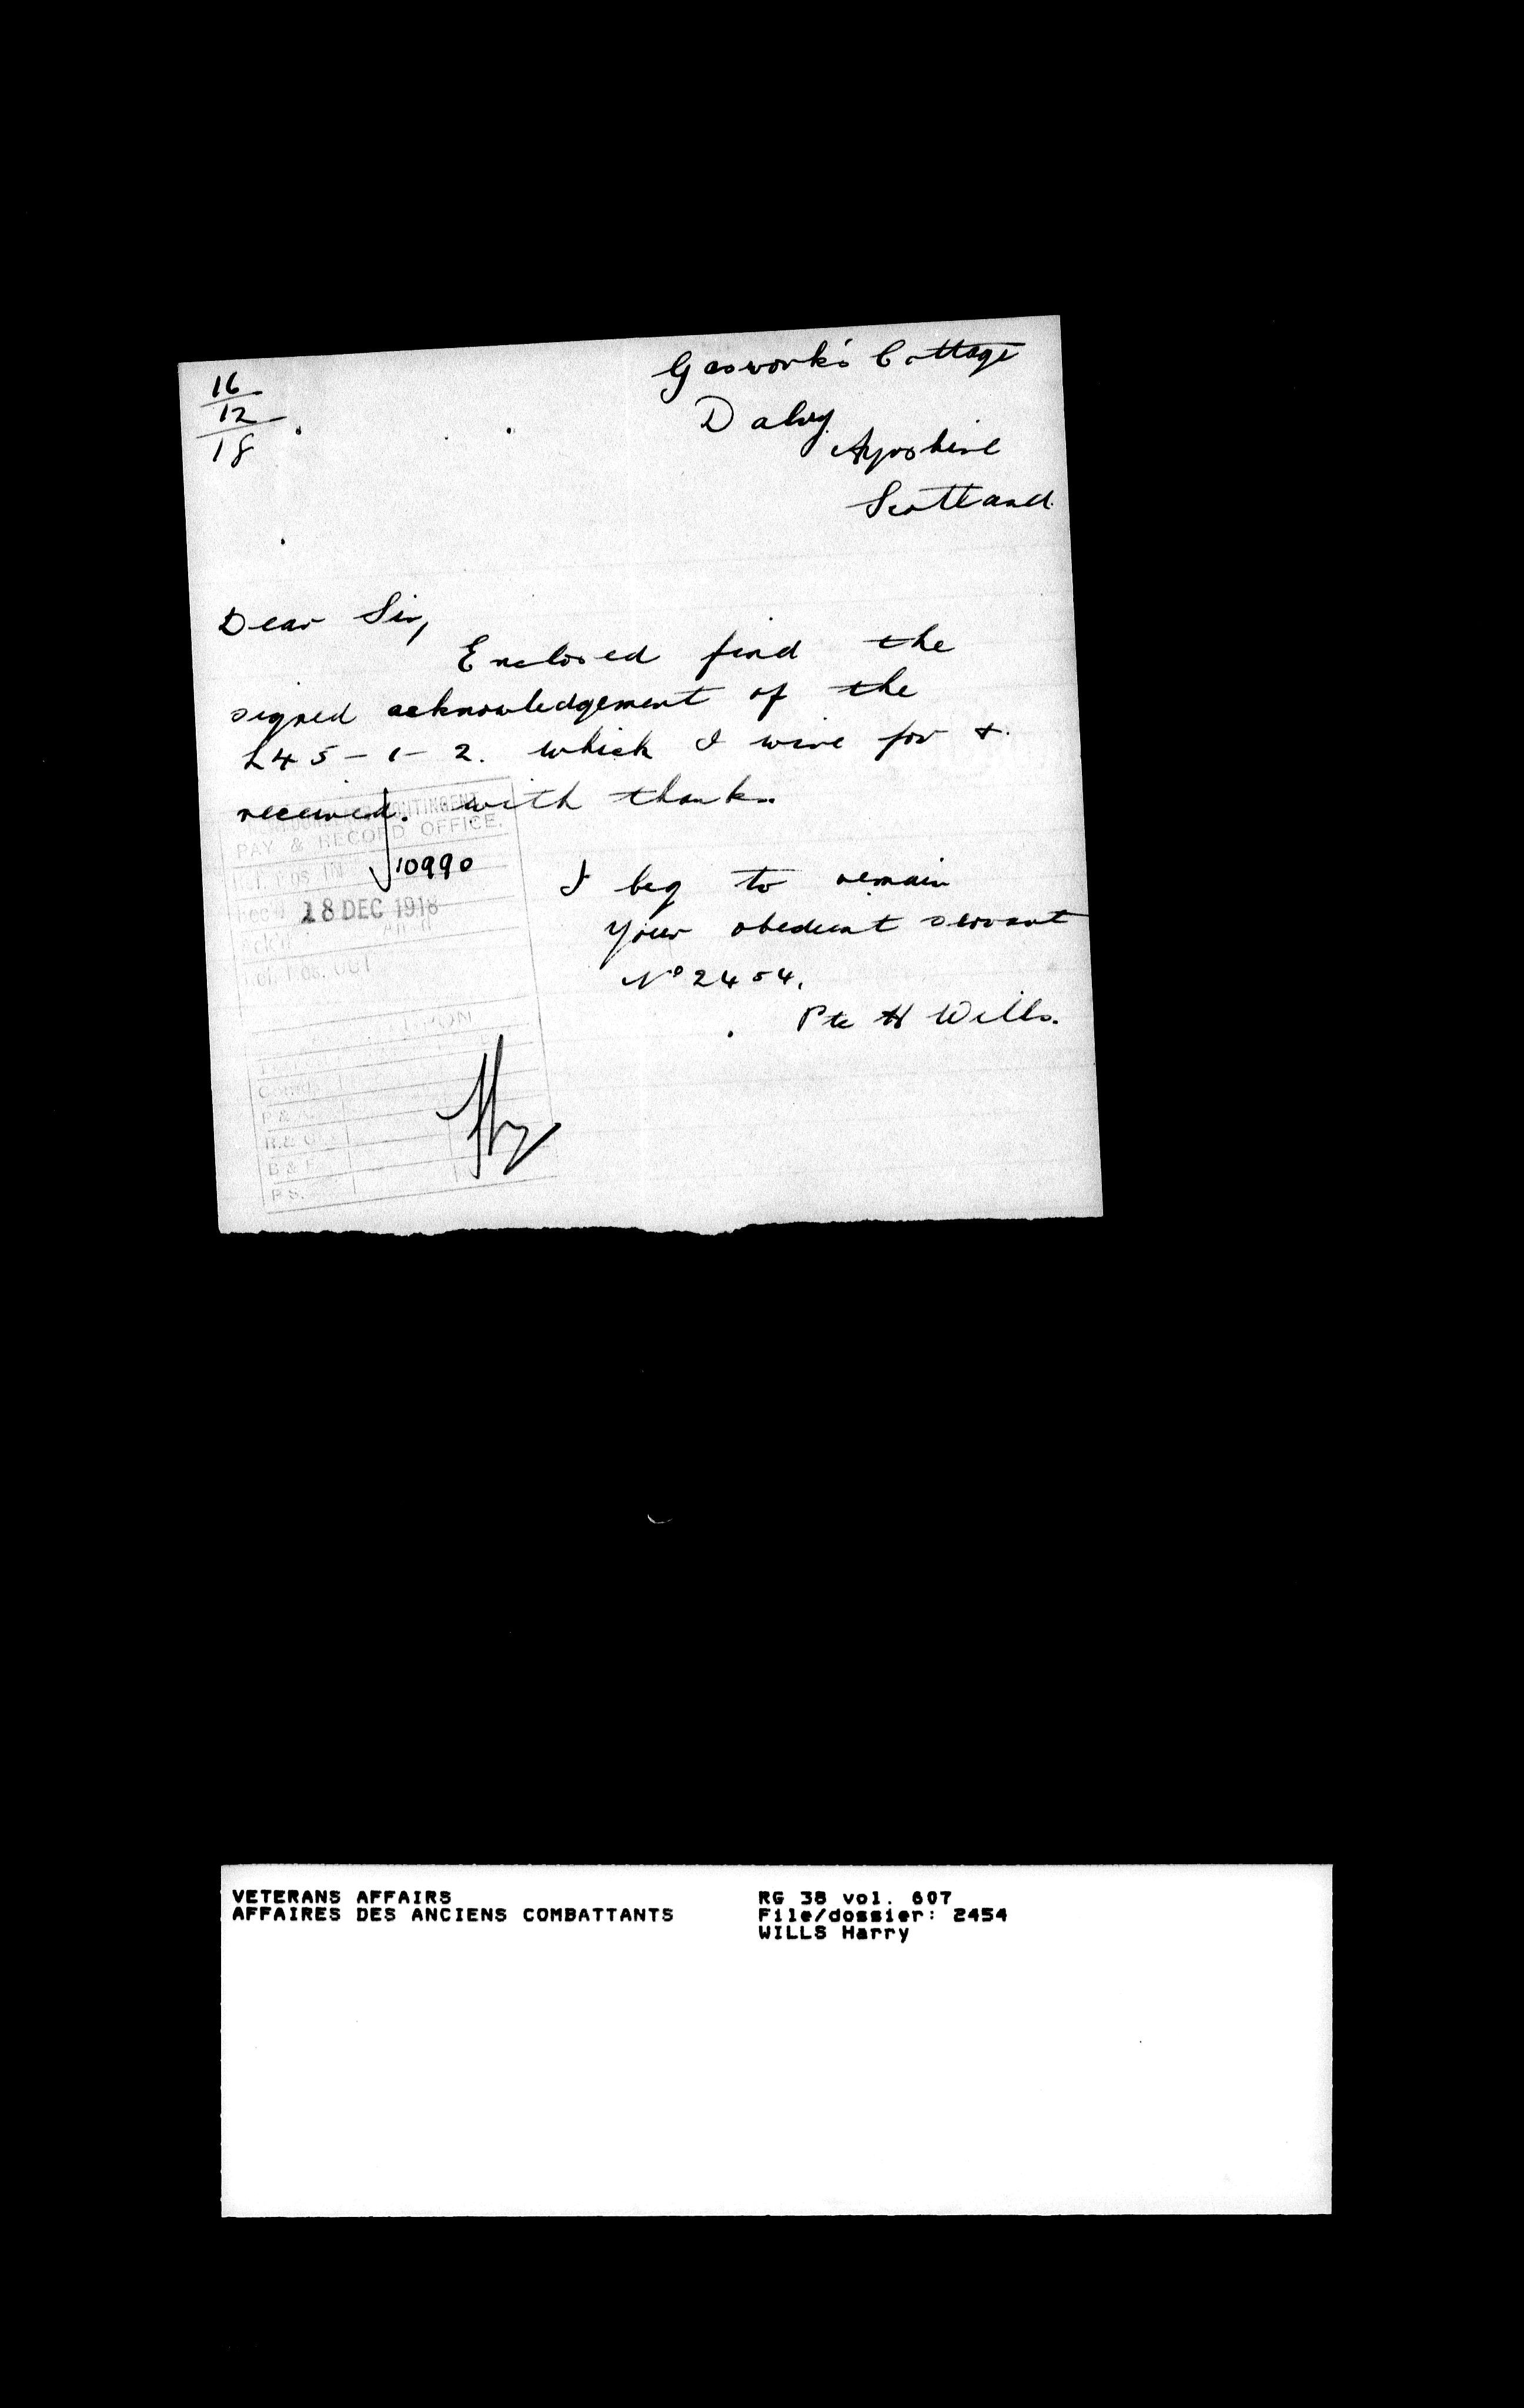 16
12
18
Gaswork's Cottage
Dalry
Ayrshire
Scotland.
Dear Sir,
Enclosed find the
signed acknowledgement of the
£45-1-2. which I wire for &
received. with thanks.
CONTINGENT
PAY & RECORD OFFICE.
Ref. Nos IN
10990
Rec'd 18 DEC 1918
Ack'd
Ref. Nos. OUT
I beg to remain
your obedient servant
No 2454.
Pte H Wills.
P & A
R. & O
B & F
P S.
VETERANS AFFAIRS
AFFAIRES DES ANCIENS COMBATTANTS
RG 38 vol. 607
File/dossier: 2454
WILLS Harry